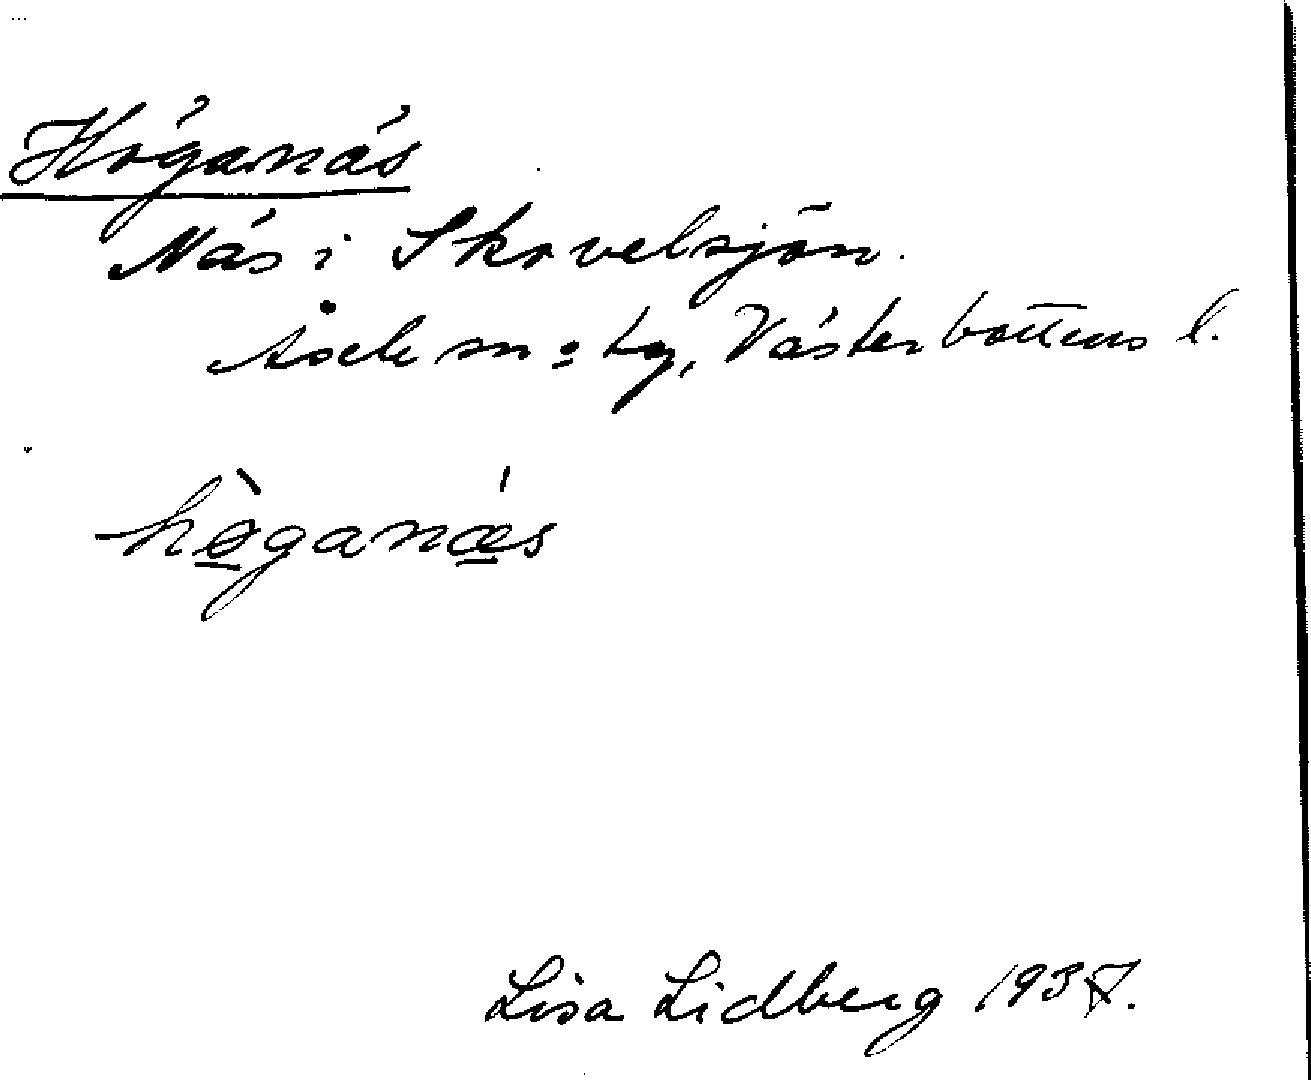 Höganäs
Näs i Skovelsjön.
Åsele sn o tg, Västerbottens l.
hö̀ganǽs
Lisa Lidberg 1937.